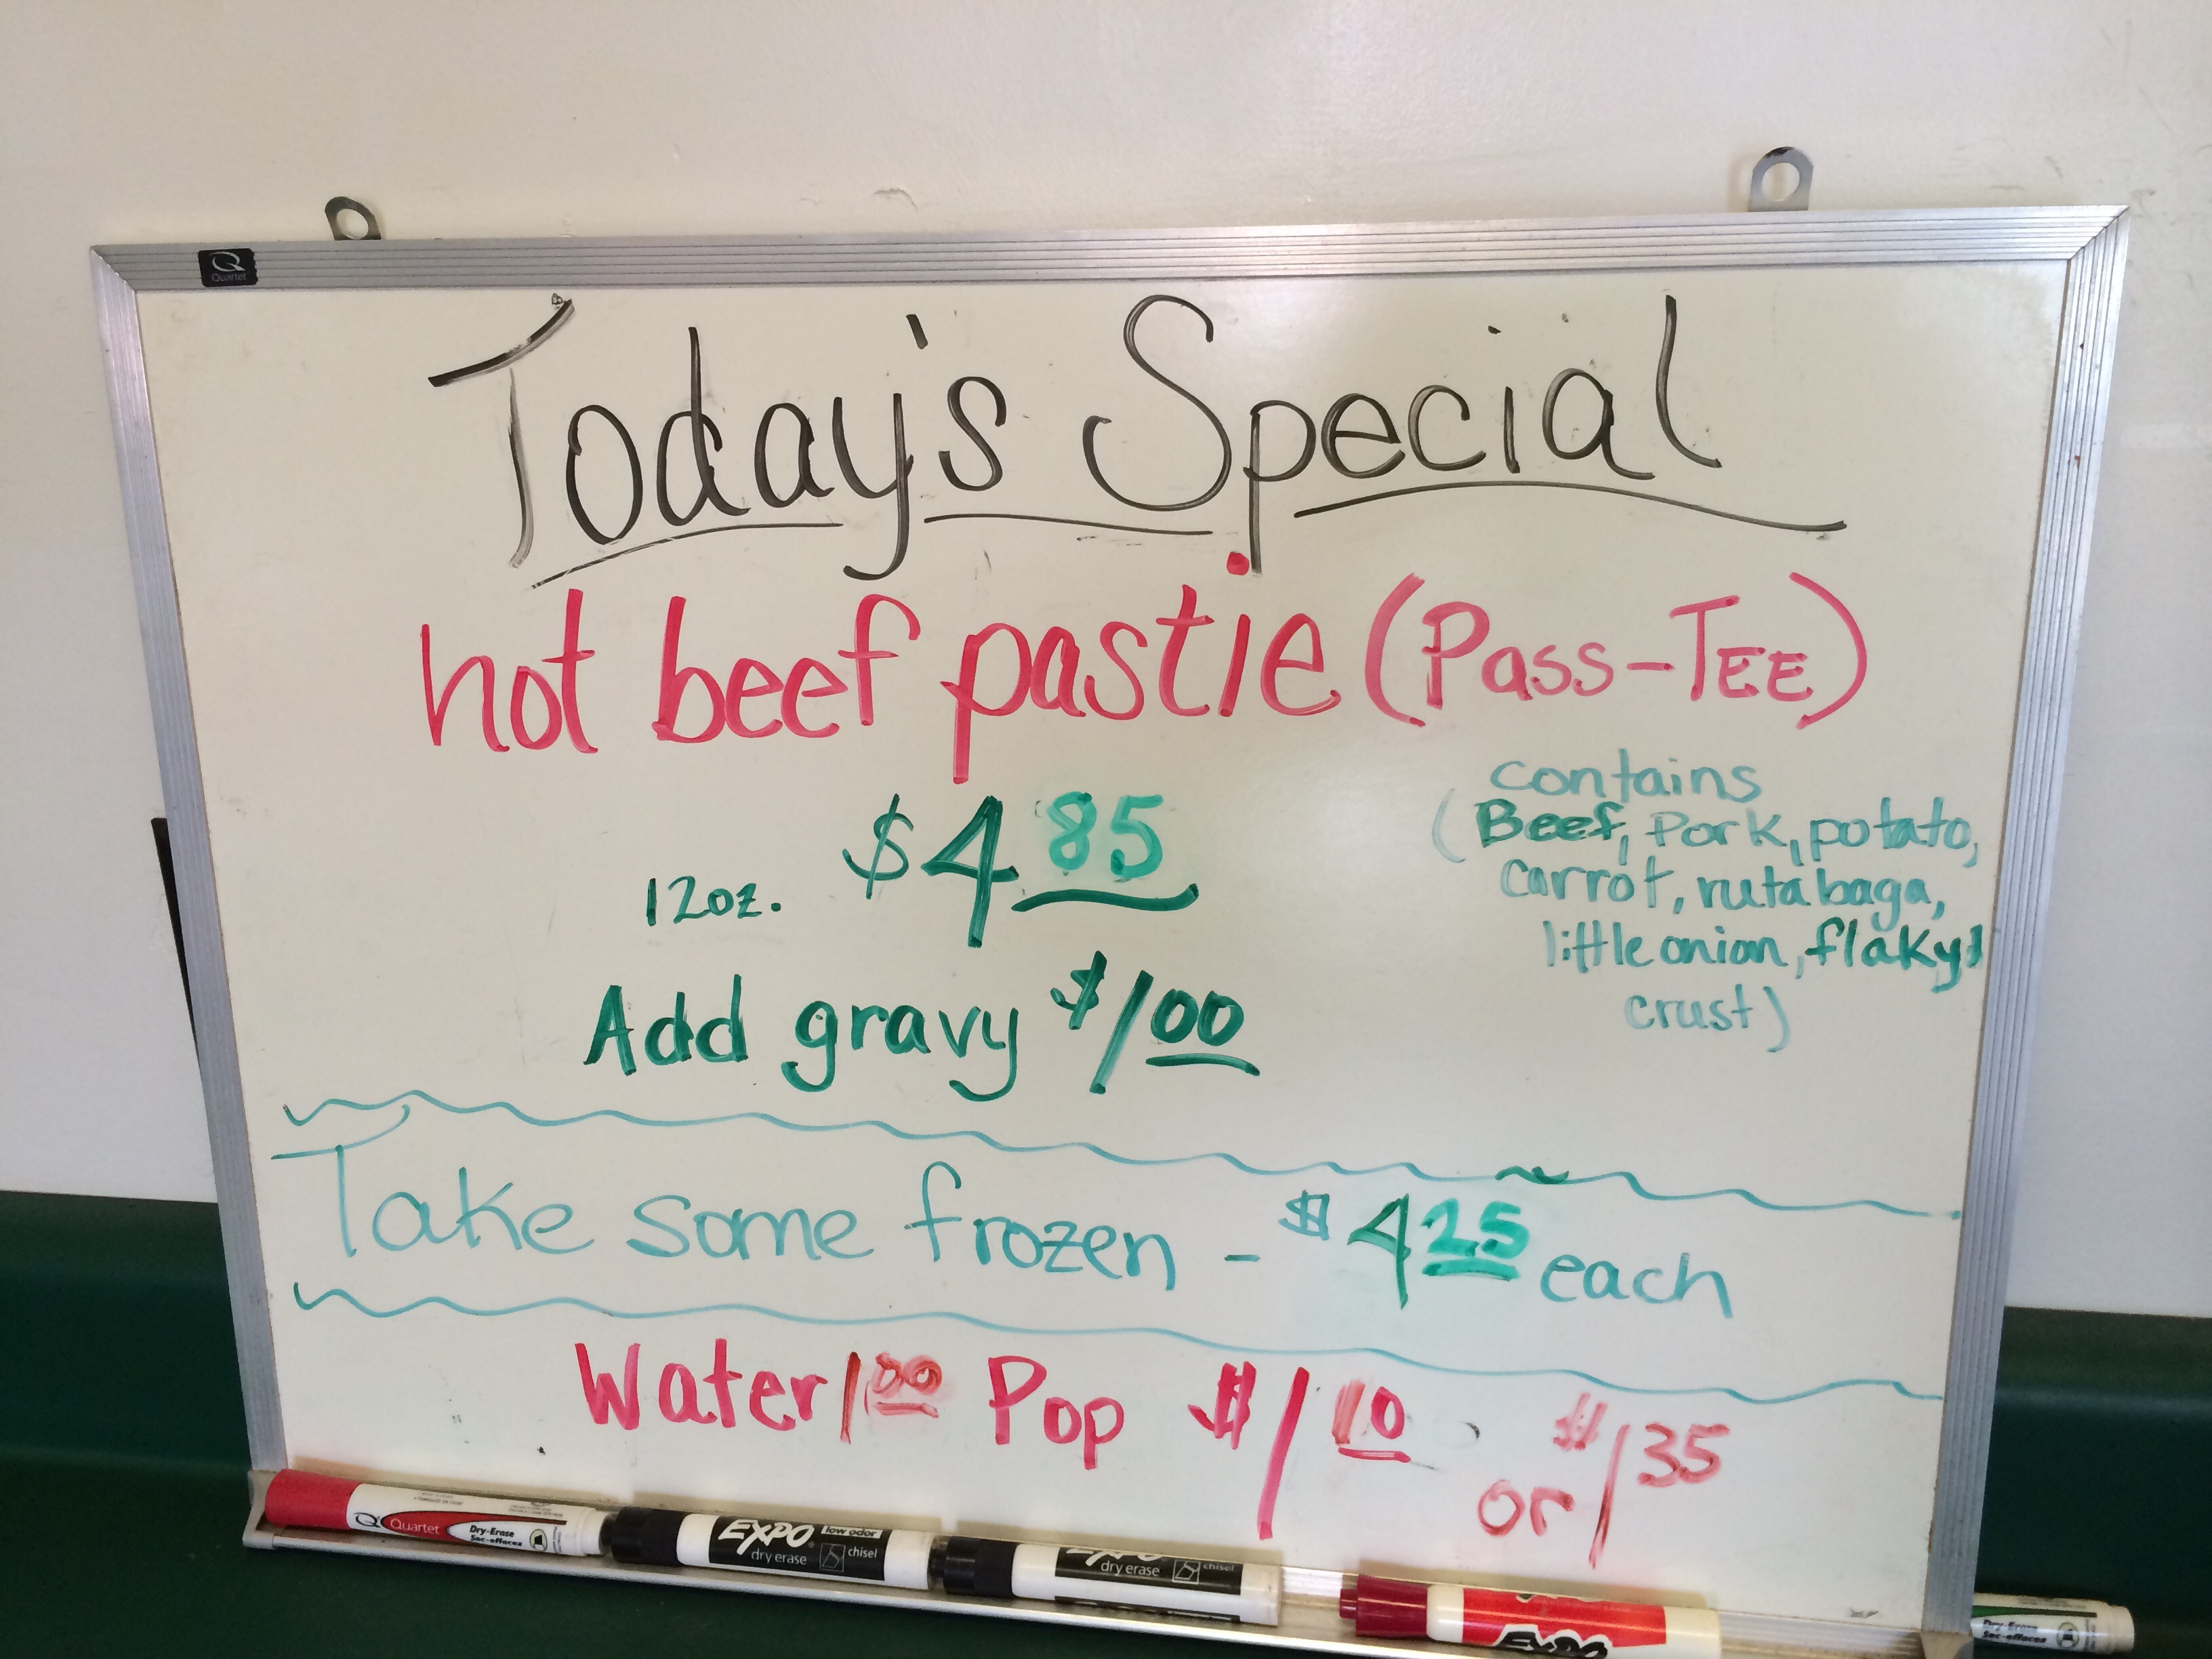 Quartet
Today's Special
hot beef pastie (Pass-Tee)
12oz. $4 85
Add gravy $1 00
contains
(Beef, Pork, potato,
carrot, rutabaga,
little onion, flaky
crust)
Take some frozen - $4 25 each
Water 1 00 Pop $1 10 or $1 35
Quartet Dry-Erase
Sec-effacez
EXPO low odor
dry erase chisel
EXPO
dry erase chisel
EXPO
Dry-Erase
Sec-effacez